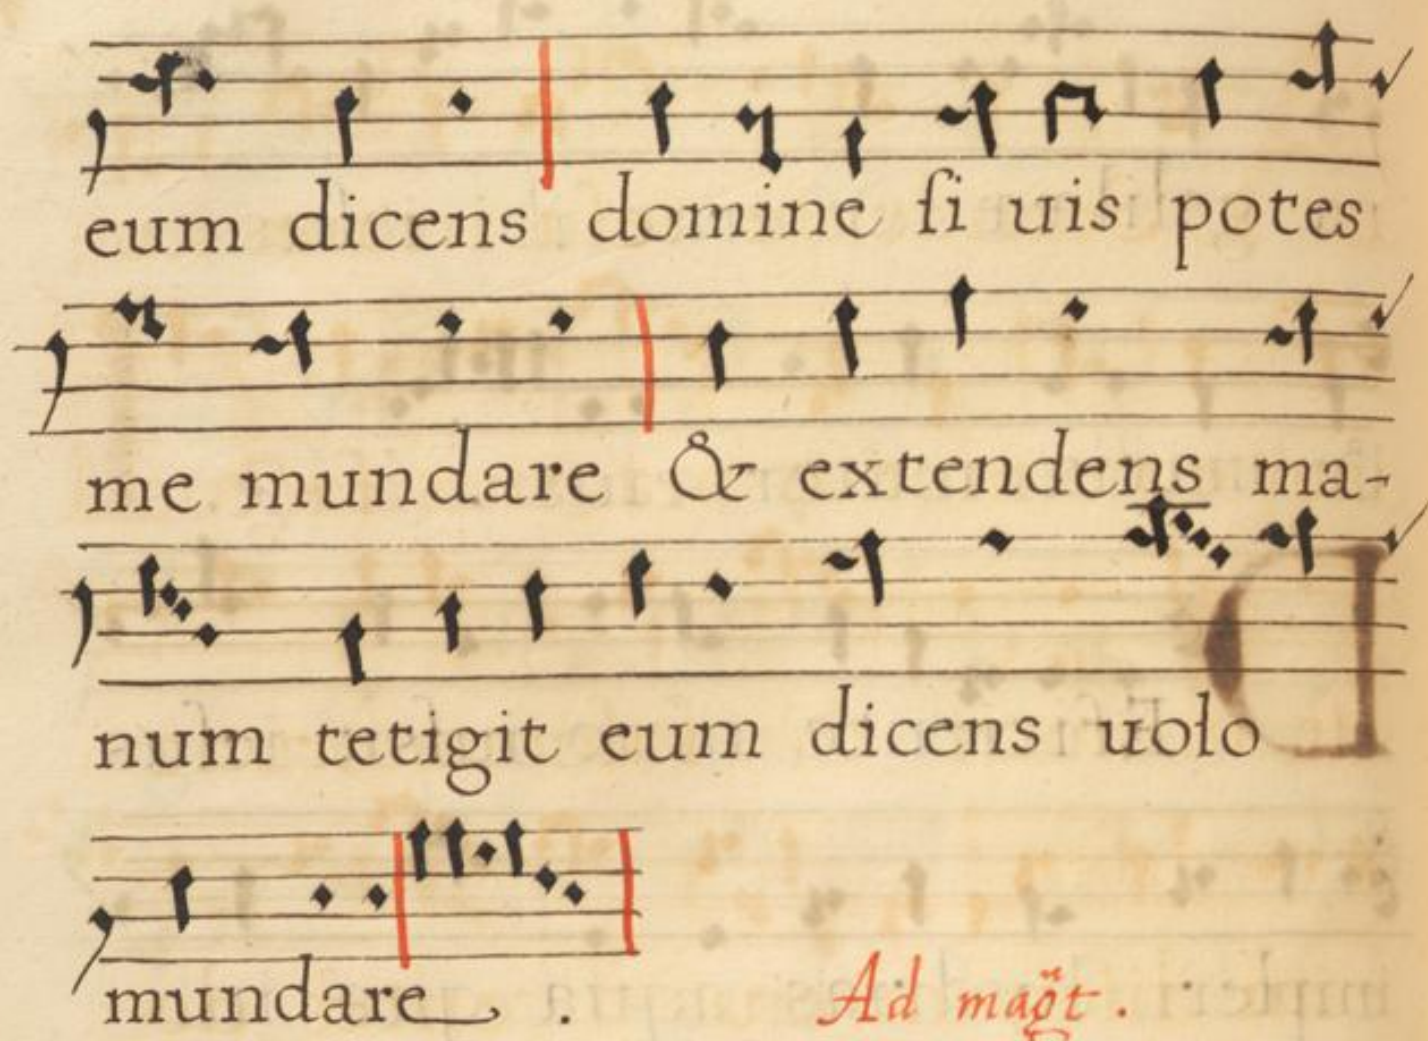 eum dicens domine ſi uis potes
me mundare & extendens ma-
num tetigit eum dicens uolo
mundare .
Ad mag̃t .